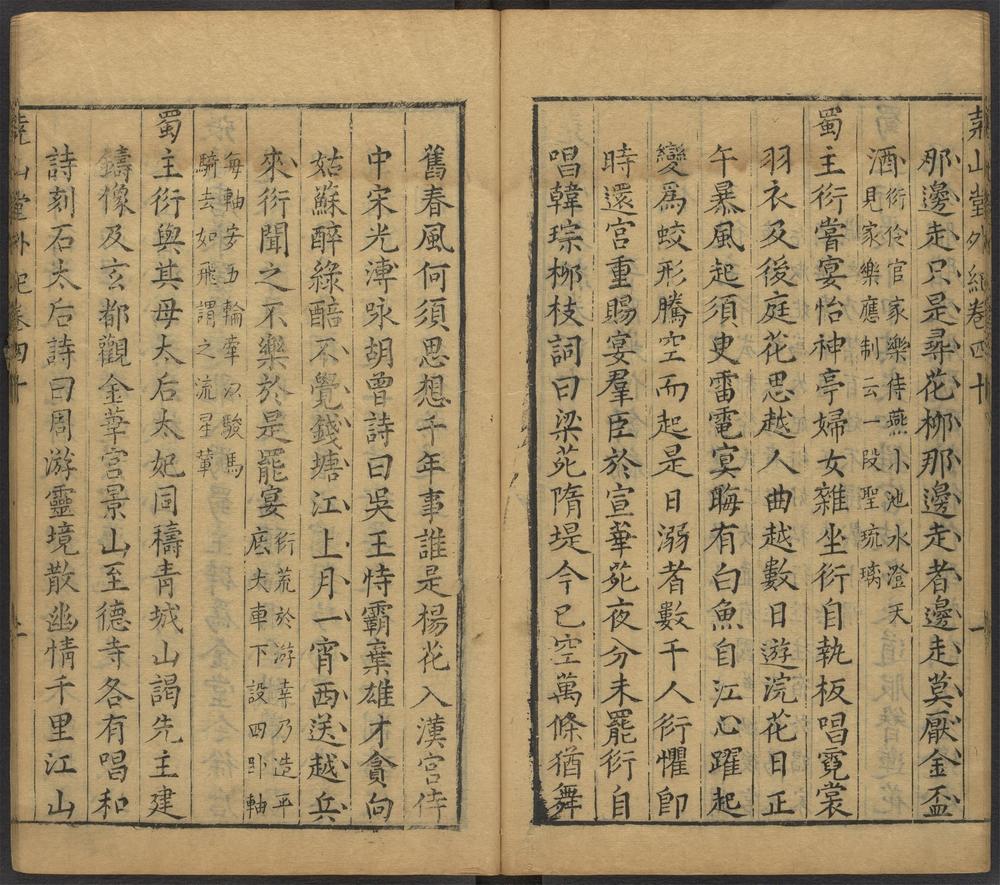 堯山堂外紀卷四十
那邊走只是尋花柳那邊走者邊走莫厭金盃
酒
衍伶官家樂侍燕小池水澄天
見家樂應制云一段聖琉璃
蜀主衍嘗宴怡神亭婦女雜坐衍自執板唱霓裳
羽衣及後庭花思越人曲越數日遊浣花日正
午暴風起須臾雷電冥晦有白魚自江心躍起
變爲蛟形騰空而起是日溺者數千人衍懼卽
時還宮重賜宴羣臣於宣華苑夜分未罷衍自
唱韓琮柳枝詞曰梁苑隋堤今已空萬條猶舞
一
舊春風何須思想千年事誰是楊花入漢宮侍
中宋光溥咏胡曾詩曰吳王恃霸棄雄才貪向
姑蘇醉綠醅不覺錢塘江上月一宵西送越兵
來衍聞之不樂於是罷宴
衍荒於游幸乃造平
底大車下設四卧軸
每軸安五輪牽以駿馬
騎去如飛謂之流星輦
蜀主衍與其母太后太妃同禱青城山謁先主建
鑄像及玄都觀金華宮景山至德寺各有唱和
詩刻石太后詩曰周游靈境散幽情千里江山
堯山堂外紀卷四十